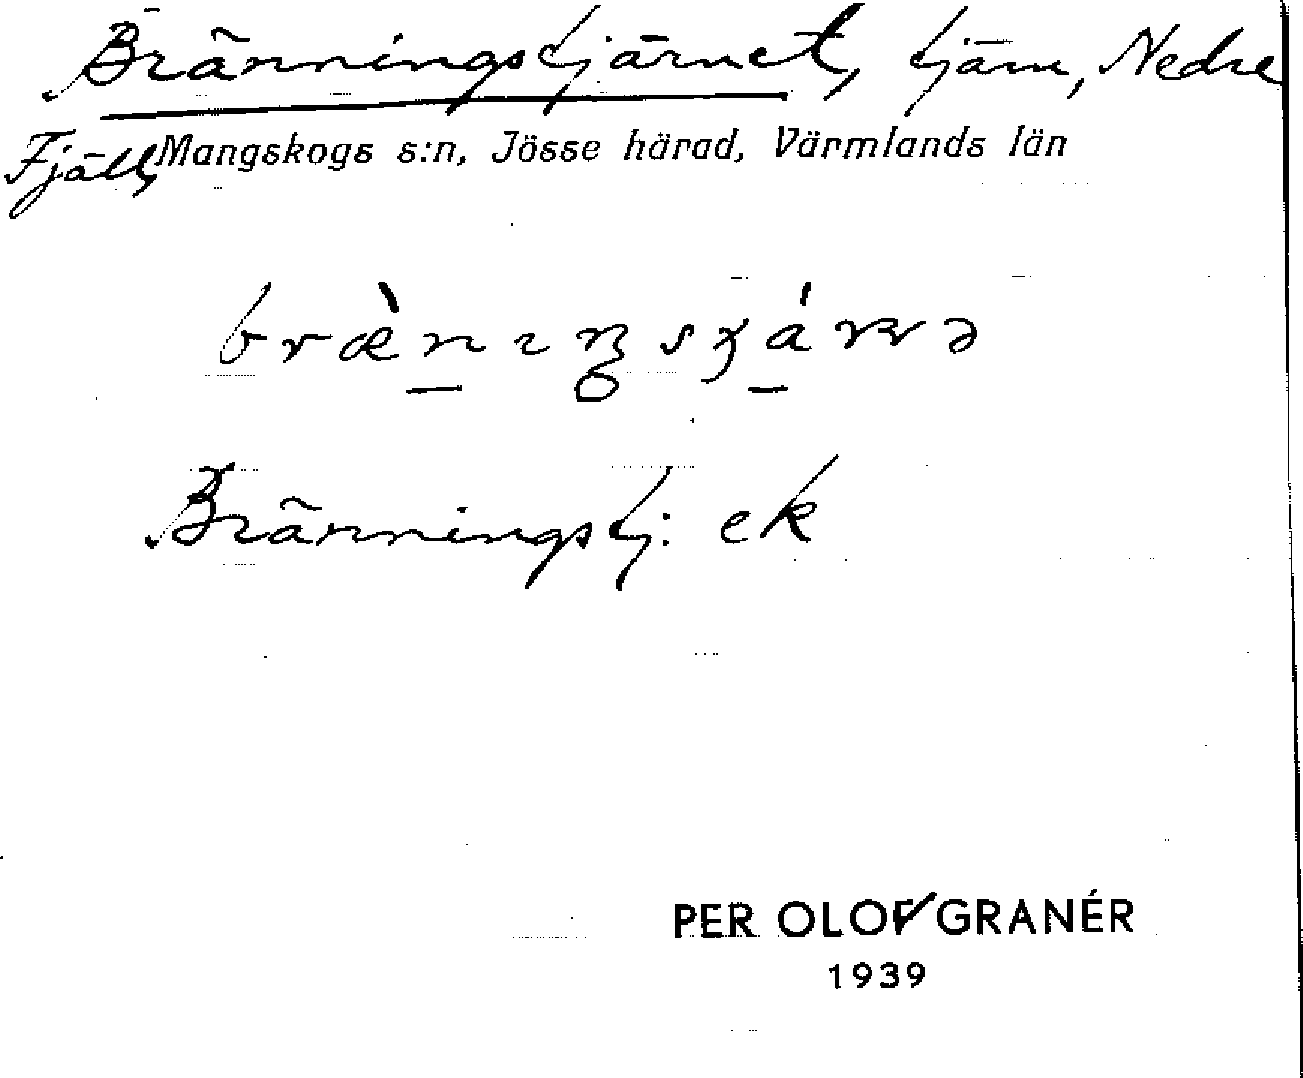 Bränningstjärnet, tjärn, Nedre
Fjäll, Mangskogs s:n, Jösse härad, Värmlands län
Bränningstj: ek
PER OLOF GRANÉR
1939